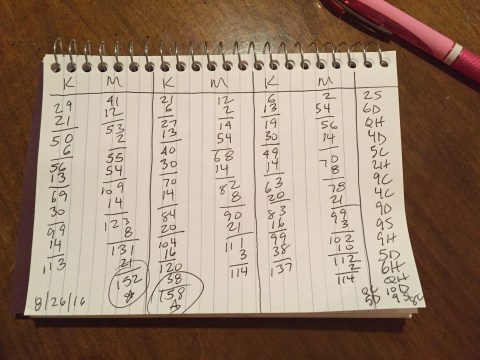 K M K M K M
29 41 21 12 6 2 2S
21 12 6 2 13 54 6D
50 53 27 14 19 56 QH
6 2 13 54 30 14 4D
56 55 40 68 49 70 5C
13 54 30 14 14 8 2H
69 109 70 82 63 78 9C
30 14 14 8 20 21 4C
99 123 84 90 83 99 9D
14 8 20 21 16 3 9S
113 131 104 111 99 102 9H
21 16 3 38 10 5D
152 120 114 137 112 6H
38 2 QH
158 114 10D
8/26/16